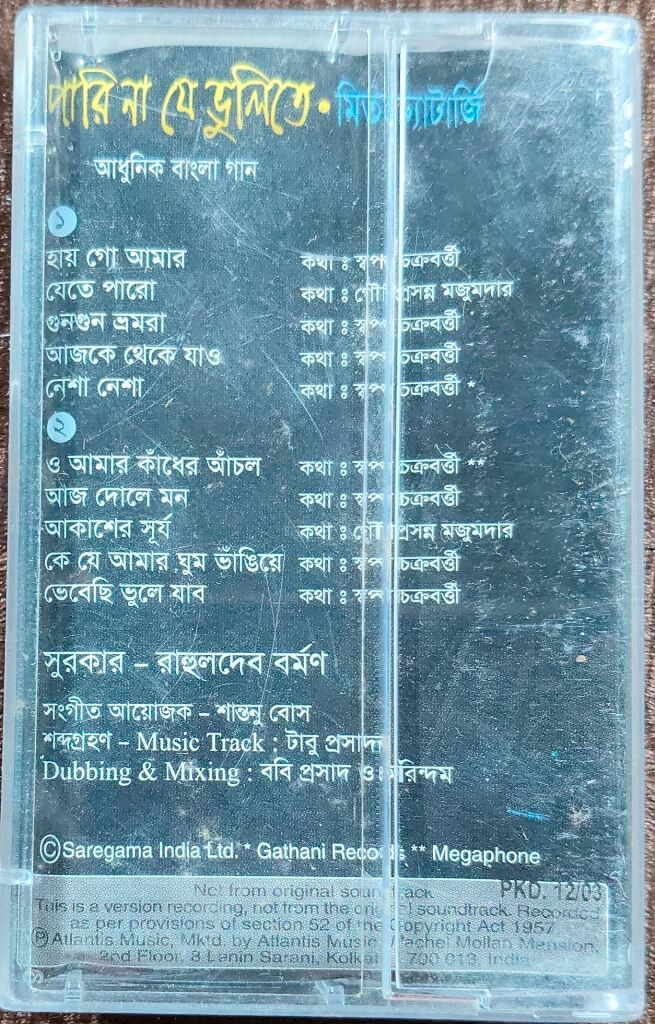 পারি না যে ভুলিতে •
আধুনিক বাংলা গান
১
হায় গো আমার কথা ঃ স্বপ চক্রবর্ত্তী
যেতে পারো কথা ঃ গৌ প্রসন্ন মজুমদার
গুনগুন ভ্রমরা কথা ঃ স্বপ চক্রবর্ত্তী
আজকে থেকে যাও কথা ঃ স্বপ চক্রবর্ত্তী
নেশা নেশা কথা ঃ স্বপ চক্রবর্ত্তী *
২
ও আমার কাঁধের আঁচল কথা ঃ স্বপ চক্রবর্ত্তী **
আজ দোলে মন কথা ঃ স্বপ চক্রবর্ত্তী
আকাশের সূর্য কথা ঃ গৌ প্রসন্ন মজুমদার
কে যে আমার ঘুম ভাঁঙিয়ে কথা ঃ স্বপ চক্রবর্ত্তী
ভেবেছি ভুলে যাব কথা ঃ স্বপ চক্রবর্ত্তী
সুরকার – রাহুলদেব বর্মণ
সংগীত আয়োজক – শান্তনু বোস
শব্দগ্রহণ – Music Track : টাবু প্রসাদ
Dubbing & Mixing : ববি প্রসাদ ও অরিন্দম
©Saregama India Ltd. * Gathani Records ** Megaphone
Not from original soundtrack PKD. 12/03
This is a version recording, not from the original soundtrack. Recorded
as per provisions of section 52 of the Copyright Act 1957
℗Atlantis Music, Mktd. by Atlantis Music, Mollah Mansion,
2nd Floor, 8 Lenin Sarani, Kolkata 700 013, India